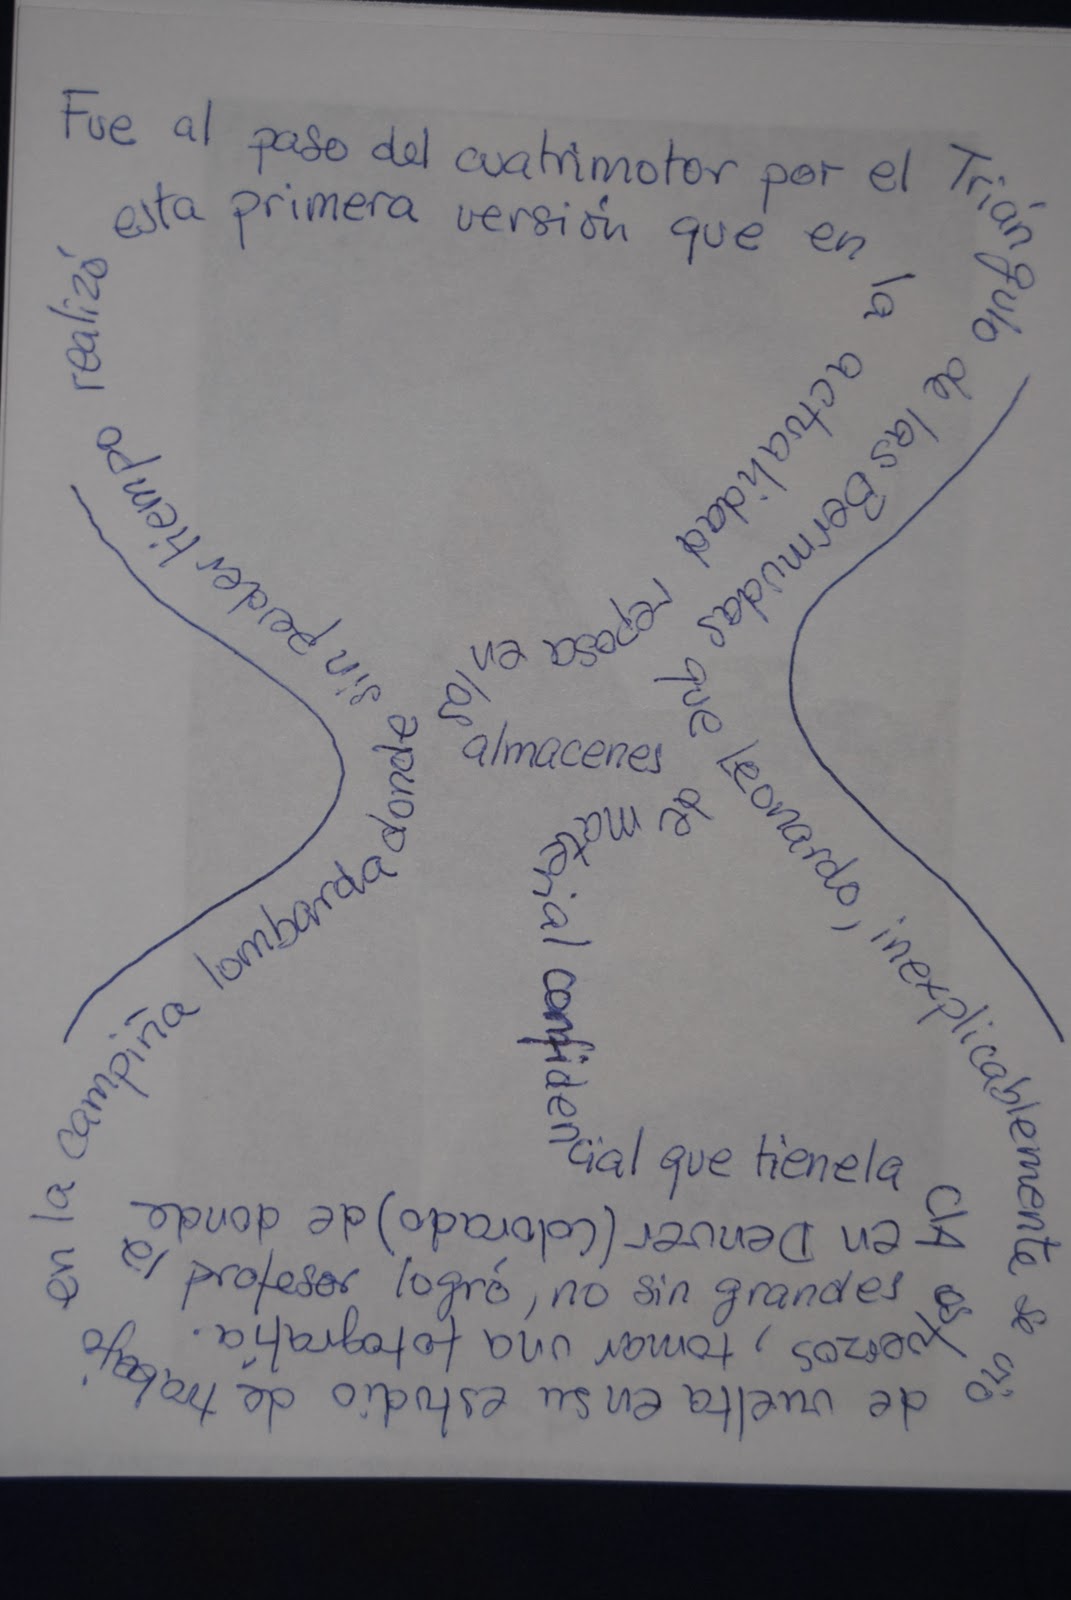 Fue al paso del cuatrimotor por el Triángulo de las Bermudas que Leonardo, inexplicablemente se vió
de vuelta en su estudio de trabajo
en la campiña lombarda donde
sin perder tiempo realizó
esta primera versión que en la actualidad reposa en los
almacenes de material confidencial que tiene la CIA
en Denver (Colorado) de donde
el profesor logró, no sin grandes es
fuerzos, tomar una fotografía.